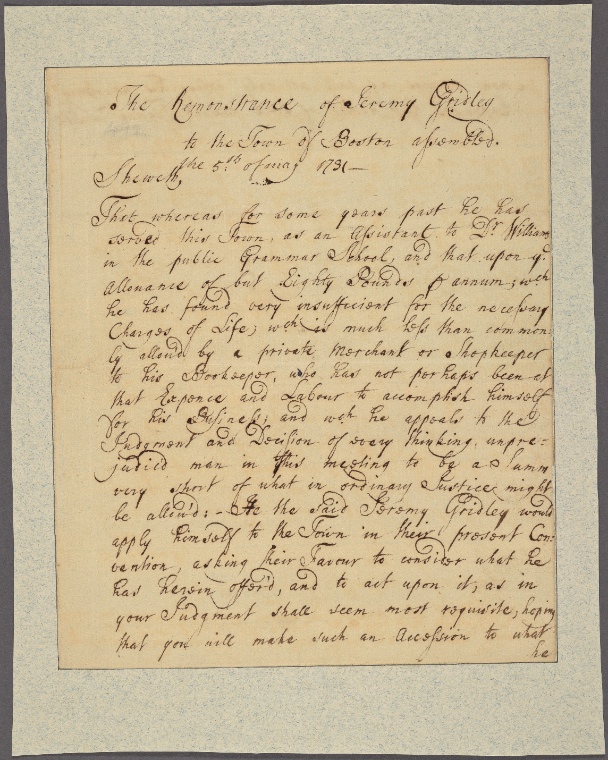 The Remonstrance of Jeremy Gridley
to the Town of Boston assembled.
the 5.th of may 1731—
Sheweth,
That whereas for some years past he has
served this Town, as an Assistant to Dr. Williams
in the public Grammar School, and that upon ye.
Allowance of but Eighty Pounds ⅌ annum; wch
he has found very insufficient for the necessary
Charges of Life; wch is much less than common-
ly allow'd by a private Merchant or Shopkeeper
to his Bookeeper, who has not perhaps been at
that Expence and Labour to accomplish himself
for his Business; and wch he appeals to the
Judgment and Decision of every thinking, unpre-
judicd man in this meeting to be a Summ
very short of what in ordinary Justice might
be allow'd: - He the said Jeremy Gridley would
apply himself to the Town in their present Con-
vention, asking their Favour to consider what he
has herein offer'd, and to act upon it, as in
your Judgment shall seem most requisite; hoping
that you will make such an Accession to what
he